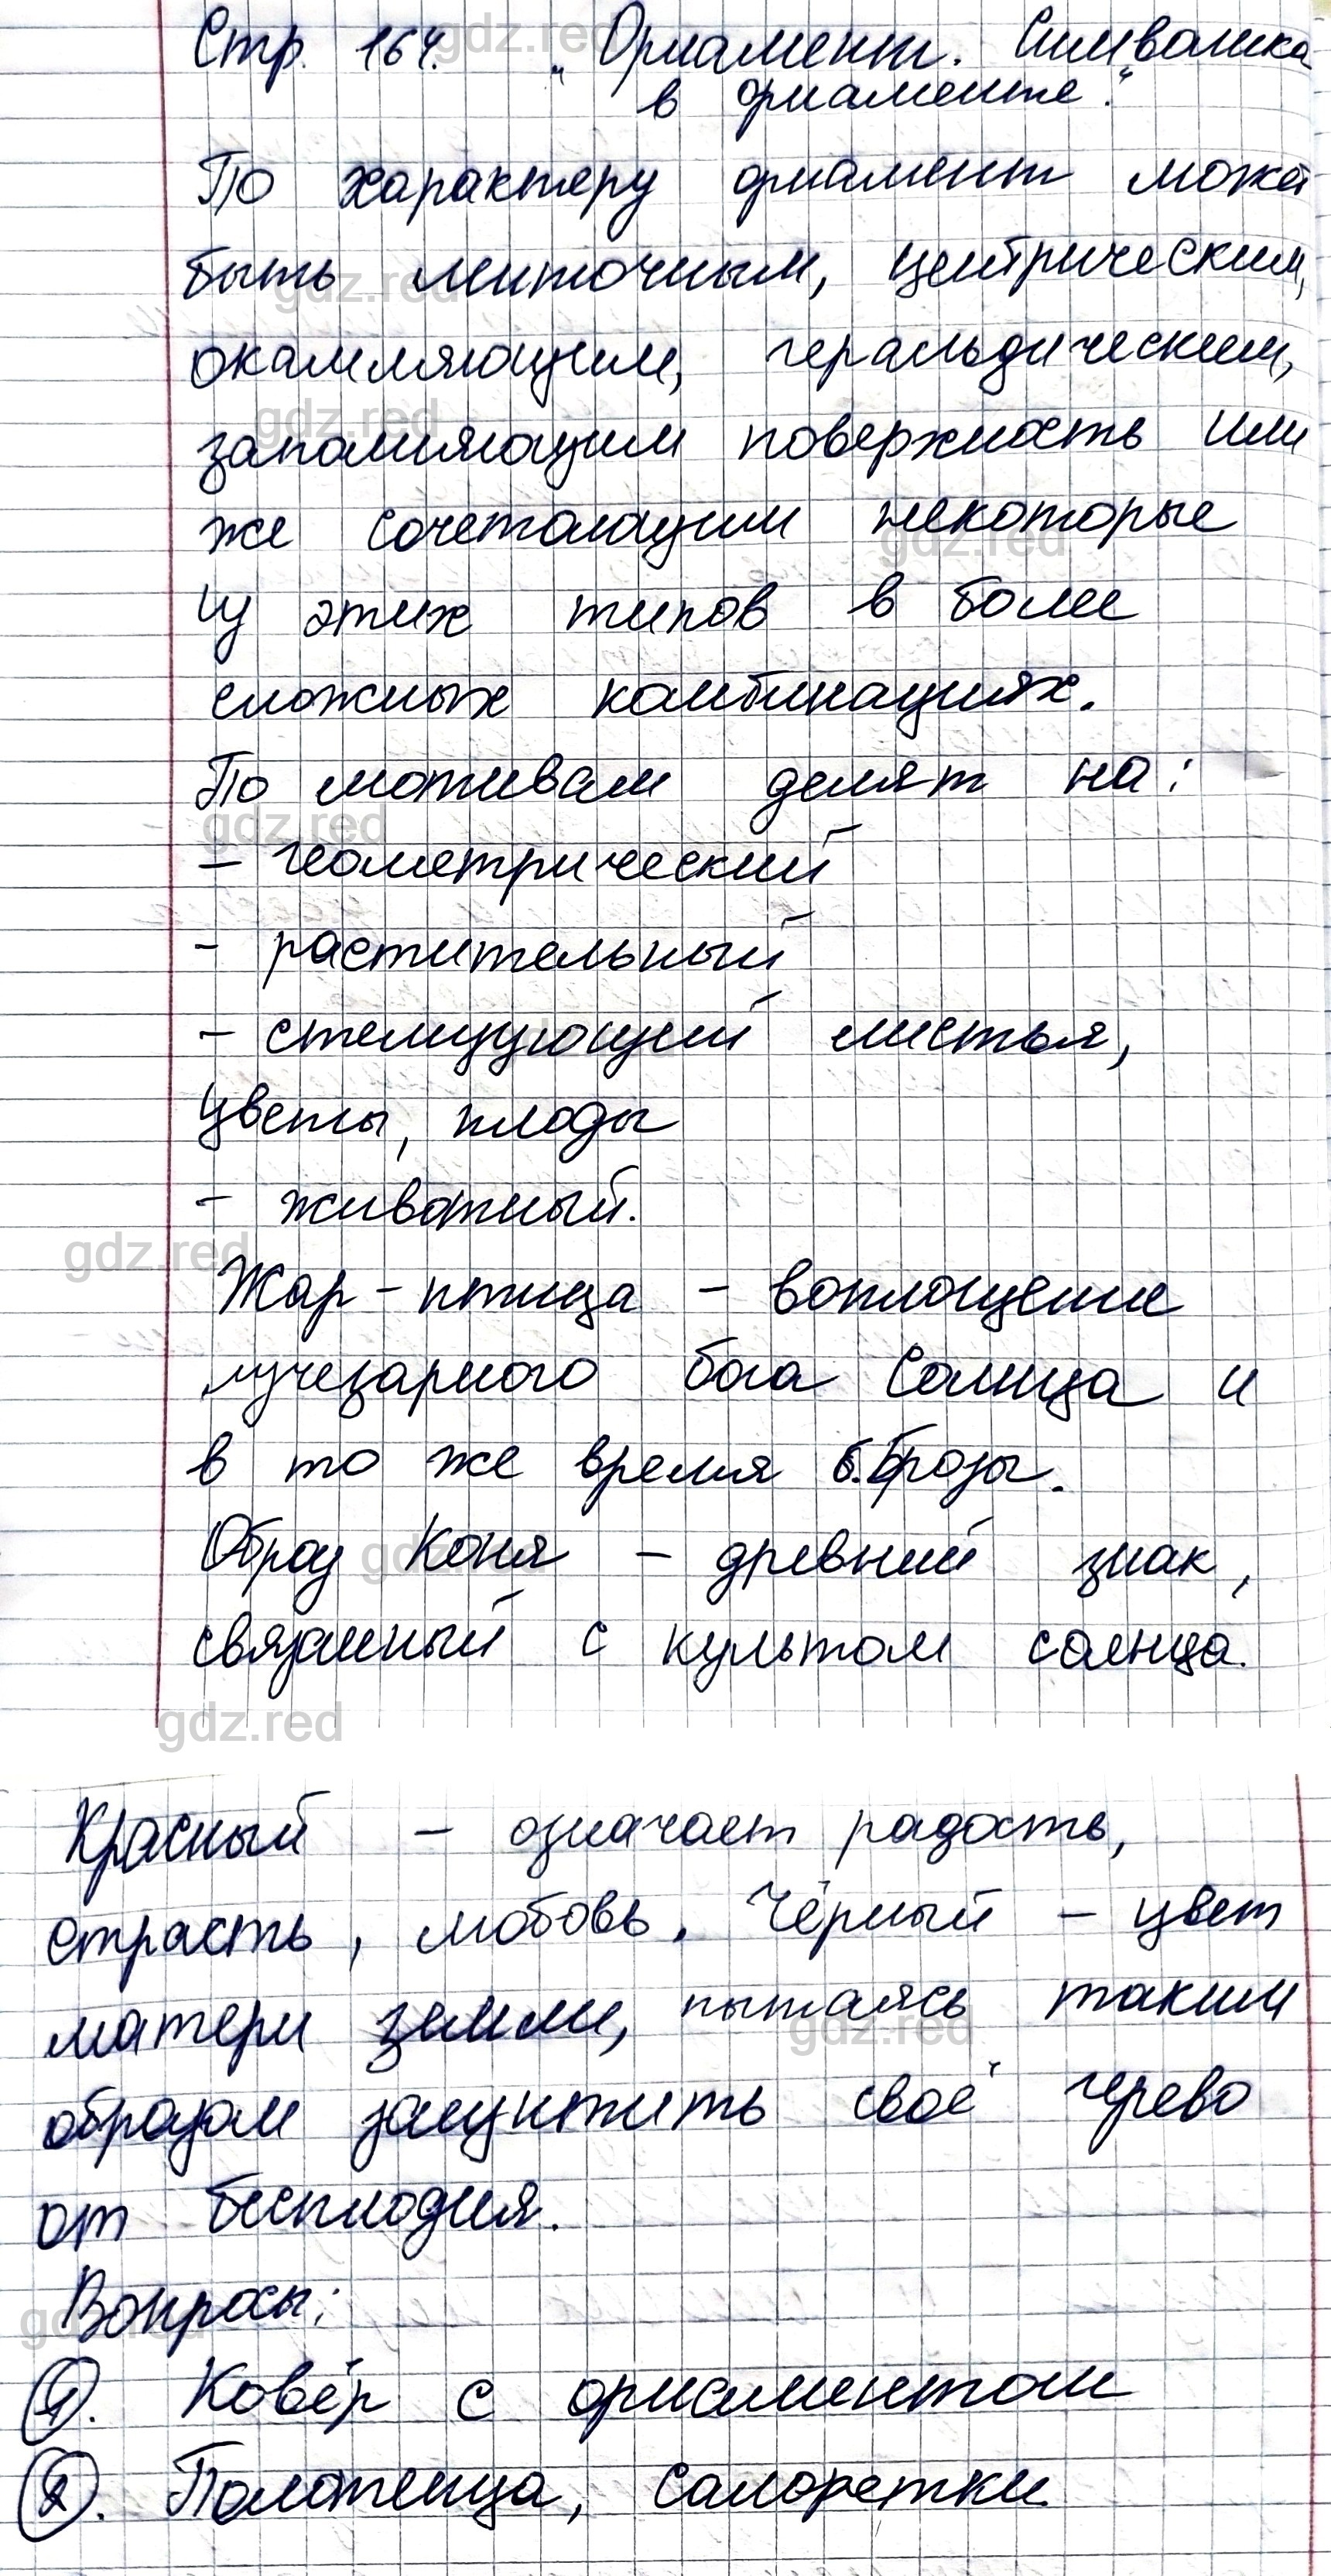 Стр. 164. „Орнамент. Символика
в орнаменте“.
По характеру орнамент может
быть ленточным, центрическим,
окаймляющим, геральдическим,
заполняющим поверхность или
же сочетающим некоторые
из этих типов в более
сложных комбинациях.
По мотивам делят на:
- геометрический
- растительный
- стелизующий листья,
цветы, плоды
- животный.
Жар-птица - воплощение
лучезарного бога Солнца и
в то же время б. Грозы.
Образ Коня - древний знак,
связанный с культом солнца.
Красный - означает радость,
страсть, любовь. Чёрный - цвет
матери земли, пытаясь таким
образом защитить своё чрево
от бесплодия.
Вопросы:
1. Ковёр с орнаментом
2. Полотенца, салфетки
gdz.red